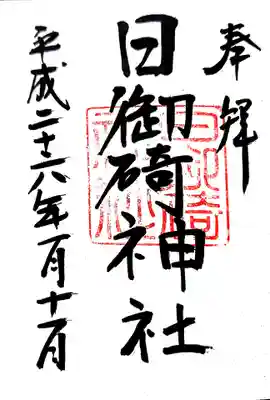 奉拝
日御碕神社
平成二十六年一月十一日